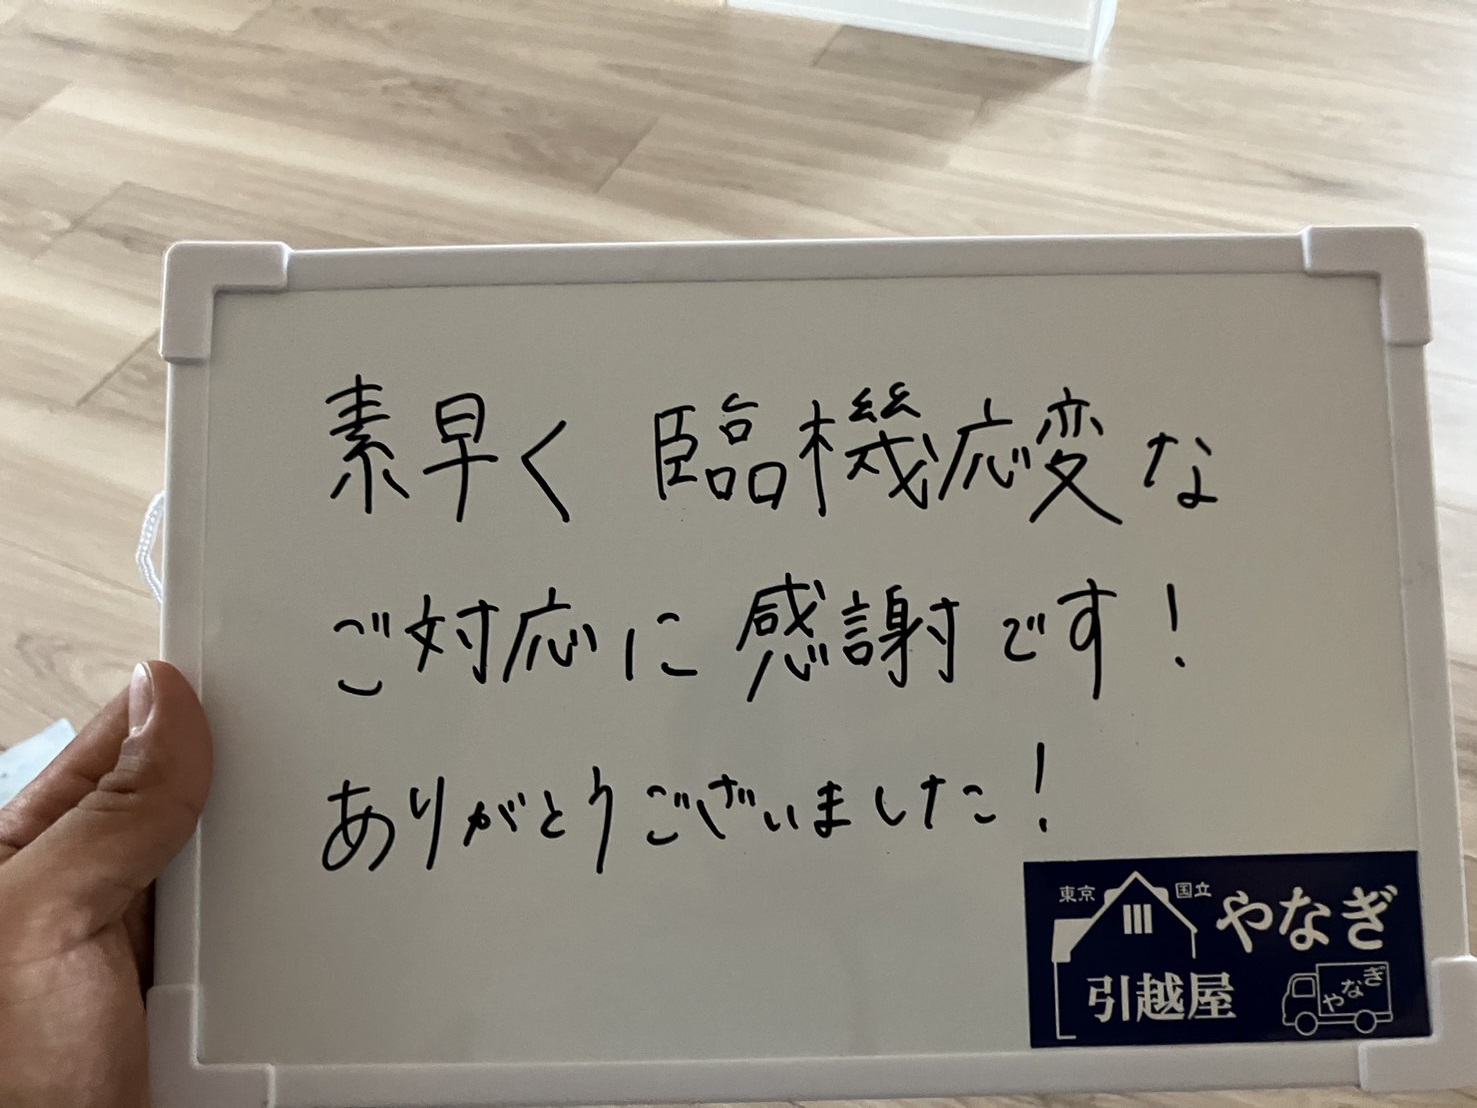 素早く 臨機応変な
ご対応に 感謝です！
ありがとうございました！
東京 国立 やなぎ
引越屋
やなぎ